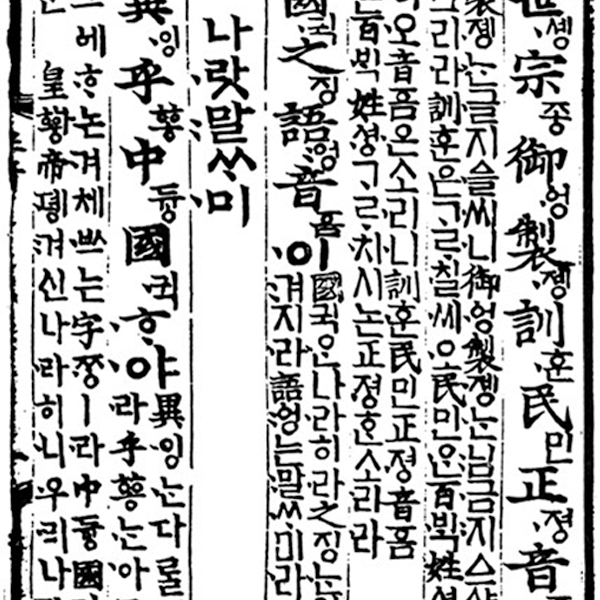 世·솅宗종御·엉製·졩訓·훈民민正·졍音
製·졩·ᄂᆞᆫ·글지·ᅀᅳᆯ·씨·니御·엉製·졩·ᄂᆞᆫ:님·금:지·ᅀᅳ·샨
그·리·라訓·훈·은ᄀᆞᄅᆞ·칠·씨·오民민·ᄋᆞᆫ百·ᄇᆡᆨ姓·셩
이·오音ᅙᅳᆷ·은소·리·니訓·훈民민正·졍音ᅙᅳᆷ
은百·ᄇᆡᆨ姓·셩ᄀᆞᄅᆞ·치시·논正·졍ᄒᆞᆫ소·리·라
國·귁之징語:엉音ᅙᅳᆷ·이
國·귁·ᄋᆞᆫ나·라히·라之징·ᄂᆞᆫ
·겨지·라語:엉·는:말ᄊᆞ·미·라
나·랏:말ᄊᆞ·미
異·잉乎ᅘᅩᆼ中듕國·귁·ᄒᆞ·야
異·잉·ᄂᆞᆫ다ᄅᆞᆯ
·라乎ᅘᅩᆼ·ᄂᆞᆫ:아
에·ᄒᆞ·논·겨체·ᄡᅳ는字·ᄍᆞᆼㅣ·라中듕國
皇황帝·뎽:겨신나·라히·니우·리나